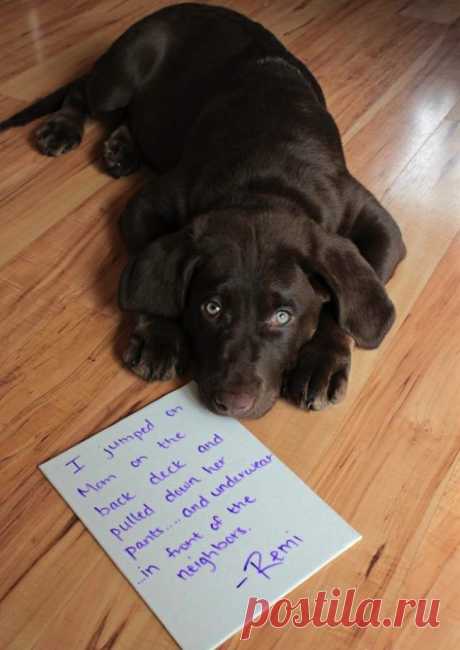 I jumped on
Mom on the
back deck and
pulled down her
pants....and underwear
...in front of the
neighbors.
-Remi
postila.ru